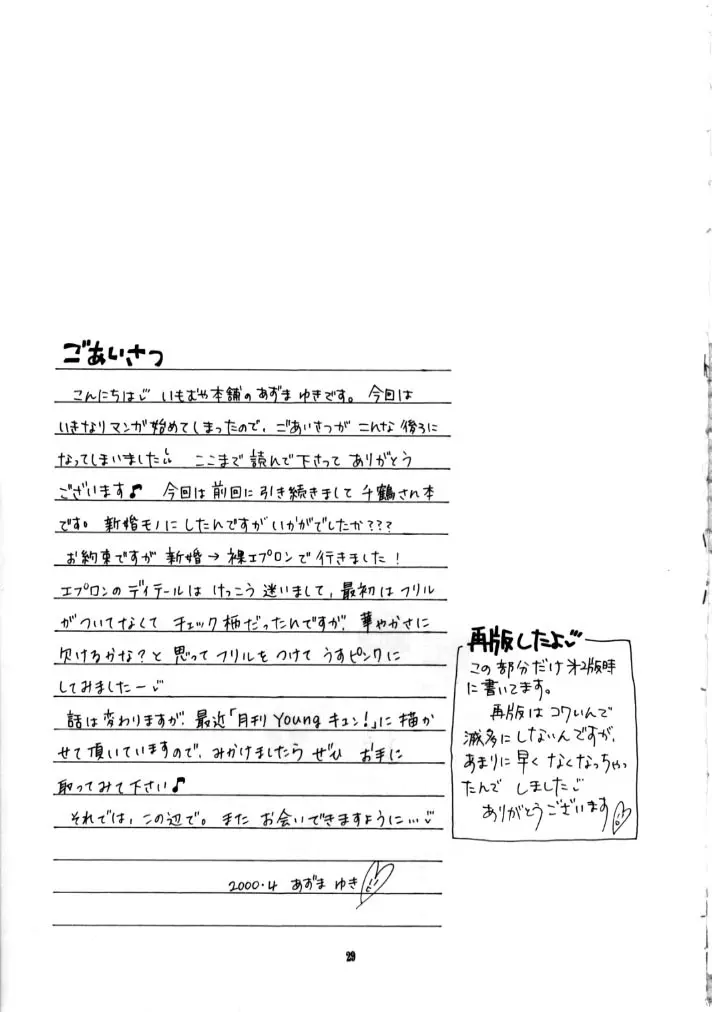 ごあいさつ
こんにちは♡ いもむや本舗のあずまゆきです。今回は
いきなりマンガ始めてしまったので、ごあいさつが こんな後ろに
なってしまいました ここまで読んで下さって ありがとう
ございます♪ 今回は前回に引き続きまして千鶴さん本
です。新婚モノにしたんですがいかがでしたか???
お約束ですが 新婚→裸エプロンで行きました!
エプロンのディテールは けっこう迷いまして、最初はフリル
がついてなくて チェック柄だったんですが、華やかさに
欠けるかな?と 思ってフリルをつけて うすピンクに
してみましたー♡
話は変わりますが、最近「月刊Youngキュン!」に描か
せて頂いていますので、みかけましたら ぜひ お手に
取ってみて下さい♪
それでは、この辺で。また お会いできますように…♡
2000.4 あずま ゆき
再版したよ♡
この部分だけ第2版時
に書いてます。
再版はコワいんで
滅多にしないんですが、
あまりに早くなくなっちゃっ
たんで しました♡
ありがとうございます
29